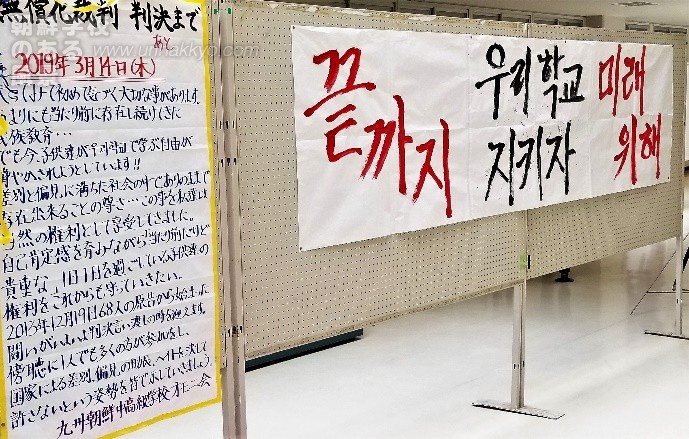 無償化裁判 判決まで
あと
2019年3月14日(木)
初めて気づく大切な事があります。
まりにも当り前に存在し続けてきた
民族教育・・・
でも今、子供達がウリハッキョで学ぶ自由が
脅やかされようとしています!!
差別と偏見に満ちた社会の中でありのままで
存在出来ることの尊さ…この事を私達は
当然の権利として享受してきました。
自己肯定感を育みながら当たり前だけど
貴重な、1日1日を過ごしている子供達の
権利をこれからも守っていきたい。
2013年12月19日68人の原告から始まった
闘いがいよいよ判決言い渡しの時を迎えます。
傍聴に1人でも多くの方が参加をし、
国家による差別、偏見の助長、ヘイトを決して
許さないという姿勢を皆で示していきましょう。
九州朝鮮中高級学校オモニ会
끝까지
우리학교 미래
지키자 위해
朝鮮学校のある
www.urihakkyo.com